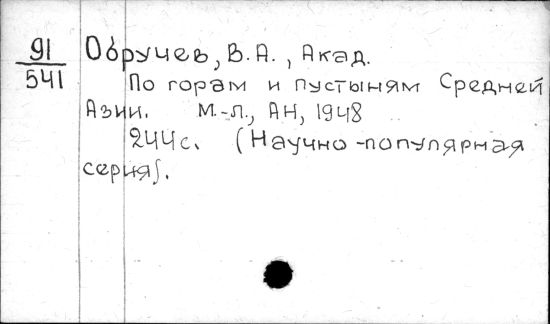 91
541
Обручев, В.А., Акад.
По горам и пустыням Средней
Азии. М.-Л., АН, 1948
244с. (Научно-популярная
серия).